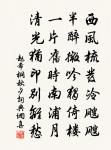 西風梳鬢冷颼颼
半醉微吟獨倚樓
一片舊時南浦月
清光猶印別離愁
趙希桐秋夕詞典網集